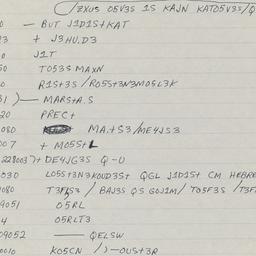 /ZXUS O5V3S 1S KAJN KATO5V3S/Q
0 — BUT J1D1S+KAT
23 + J3HU.D3
0 J1T
50 TO53S MAXN
0 R1S+3S / RO5S+3N3MO5L3K
31 )— MARS+A.S
20 PREC+
080 MA.+S3/ME4JS3
007 + MO5S+L
228003 )+ DE4JG3S Q-U
030 LO5S+3N3KOUD3S+ QGL J1D1S+ CM HEBRE
1080 BAJ3S QS GOJ1M/ TO5F3S
9051 O5RL
4 O5RLT3
09052 — QELSW
0010 KO5CN /)-OUS+3R